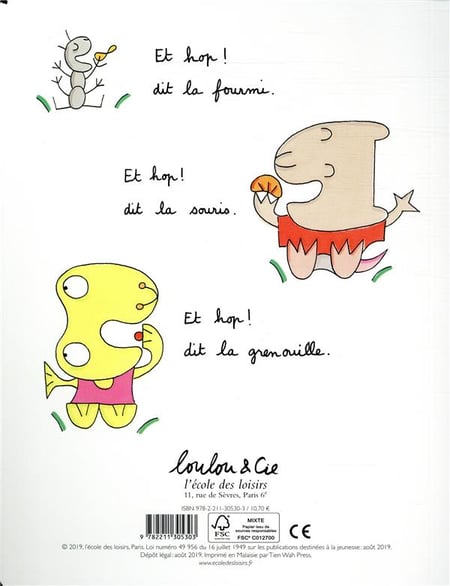 Et hop!
dit la fourmi.
Et hop!
dit la souris.
Et hop!
dit la grenouille.
loulou & Cie
l'école des loisirs
11, rue de Sèvres, Paris 6e
ISBN 978-2-211-30530-3 / 10,70 €
FSC
www.fsc.org
MIXTE
Papier issu de
sources responsables
FSC® C012700
CE
9 782211 305303
© 2019, l'école des loisirs, Paris. Loi numéro 49 956 du 16 juillet 1949 sur les publications destinées à la jeunesse: août 2019.
Dépôt légal: août 2019. Imprimé en Malaisie par Tien Wah Press.
www.ecoledesloisirs.fr